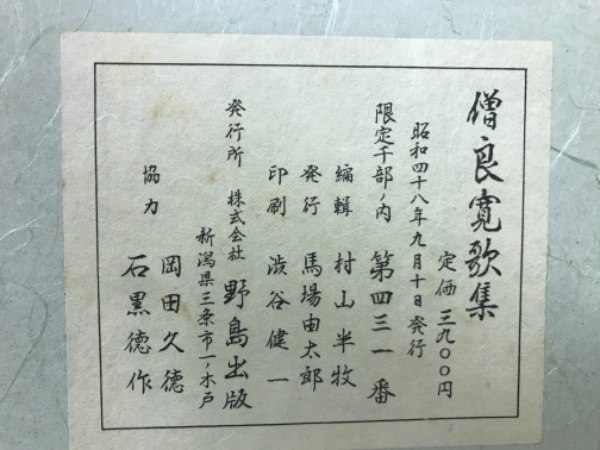 僧良寛歌集
定価 三九〇〇円
昭和四十八年九月十日発行
限定千部ノ内 第四三一番
編輯 村山半牧
発行 馬場由太郎
印刷 渋谷健一
発行所 株式会社 野島出版
新潟県三条市一ノ木戸
協力 岡田久徳
石黒徳作